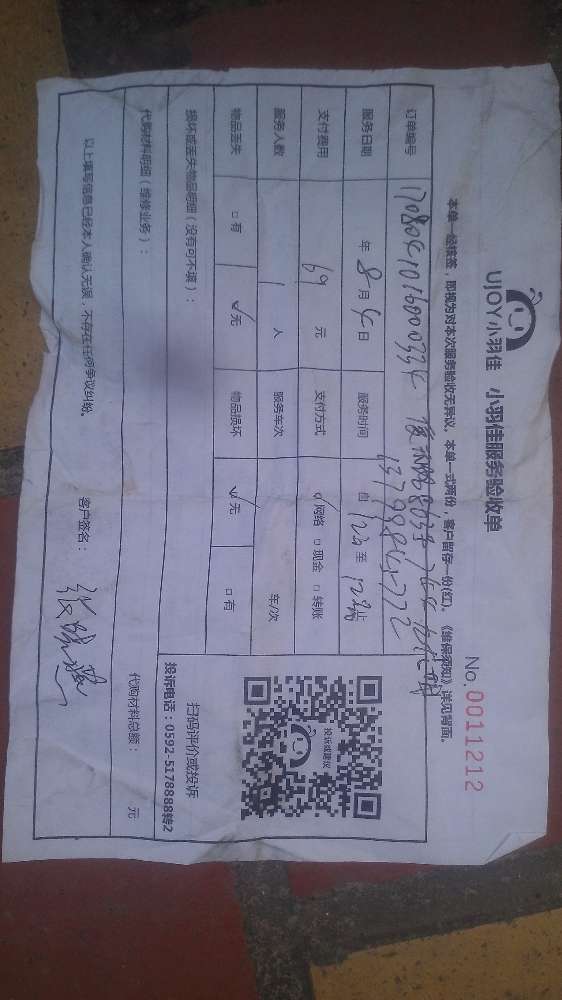 UJOY小羽佳 小羽佳服务验收单
No. 0011212
本单一经核签，即视为对本次服务验收无异议。本单一式两份，客户留存一份(红)。《维保须知》详见背面。
订单编号
服务日期 年 8 月 日 服务时间 自 至
13799845772
支付费用 69 元 支付方式 ☑网络 □现金 □转账
服务人数 1 人 服务车次 车/次
物品丢失 □有 ☑无 物品损坏 ☑无 □有
损坏或丢失物品明细（没有可不填）：
投诉或建议
扫码评价或投诉
投诉电话：0592-5178888转2
代购材料明细（维修业务）：
代购材料总额： 元
以上填写信息已经本人确认无误，不存在任何争议纠纷。 客户签名：